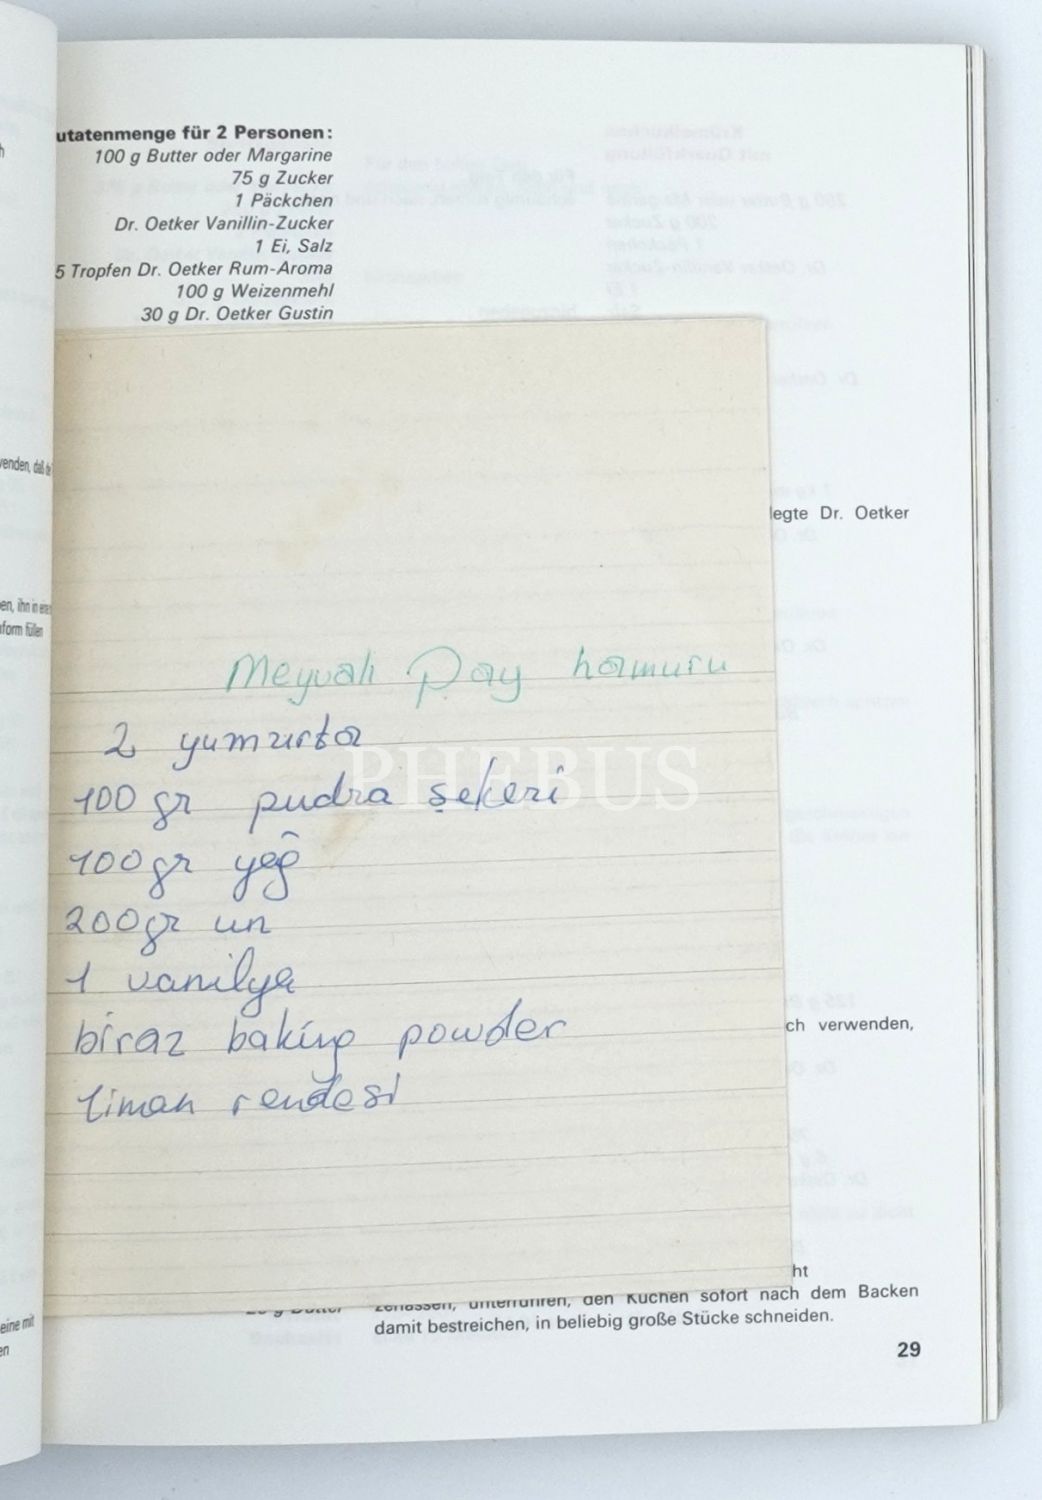 h
utatenmenge für 2 Personen:
100 g Butter oder Margarine
75 g Zucker
1 Päckchen
Dr. Oetker Vanillin-Zucker
1 Ei, Salz
5 Tropfen Dr. Oetker Rum-Aroma
100 g Weizenmehl
30 g Dr. Oetker Gustin
venden, daß de
legte Dr. Oetker
en, ihn in eine
form füllen
Meyvalı Pay hamuru
2 yumurta
PHEBUS
100 gr pudra şekeri
100gr yağ
200gr un
1 vanilya
biraz baking powder
liman rendesi
ch verwenden,
ht
zerlassen, unterrühren, den Kuchen sofort nach dem Backen
damit bestreichen, in beliebig große Stücke schneiden.
eine mit
en
29